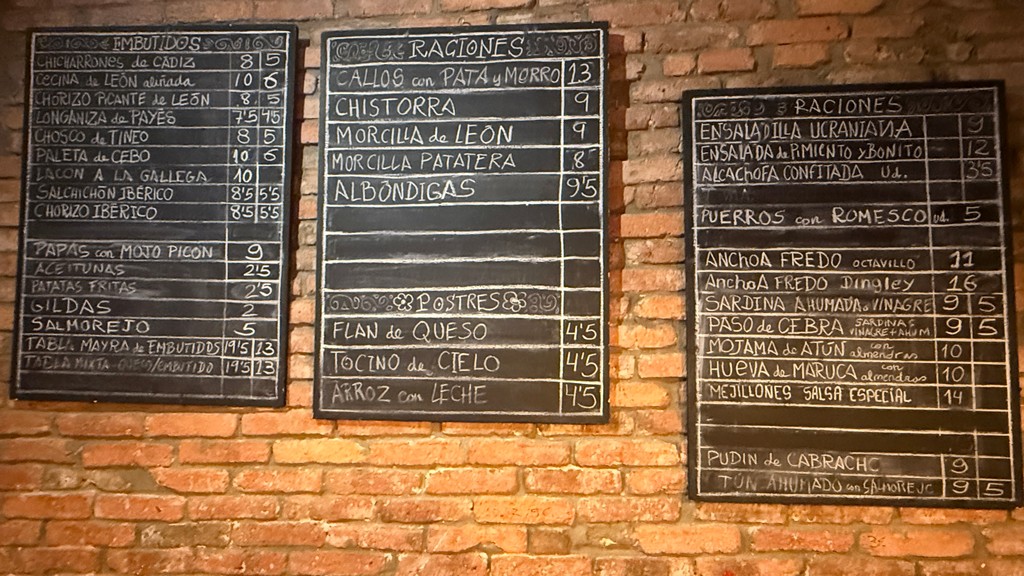 EMBUTIDOS
CHICHARRONES de CÁDIZ 8 5
CECINA de LEÓN aliñada 10 6
CHORIZO PICANTE de LEÓN 8 5
LONGANIZA de PAYÉS 7'5 4'5
CHOSCO de TINEO 8 5
PALETA de CEBO 10 6
LACON A LA GALLEGA 10
SALCHICHÓN IBÉRICO 8'5 5'5
CHORIZO IBÉRICO 8'5 5'5
PAPAS con MOJO PICÓN 9
ACEITUNAS 2'5
PATATAS FRITAS 2'5
GILDAS 2
SALMOREJO 5
TABLA MAYRA de EMBUTIDOS 19'5 13
TABLA MIXTA QUESO/EMBUTIDO 19'5 13
RACIONES
CALLOS con PATA y MORRO 13
CHISTORRA 9
MORCILLA de LEÓN 9
MORCILLA PATATERA 8
ALBÓNDIGAS 9'5
POSTRES
FLAN de QUESO 4'5
TOCINO de CIELO 4'5
ARROZ con LECHE 4'5
RACIONES
ENSALADILLA UCRANIANA 9
ENSALADA de PIMIENTO y BONITO 12
ALCACHOFA CONFITADA Ud. 3'5
PUERROS con ROMESCO ud. 5
ANCHOA FREDO OCTAVILLO 11
ANCHOA FREDO Dingley 16
SARDINA AHUMADA o VINAGRE 9 5
PASO de CEBRA SARDINAS VINAGRE+AHUM 9 5
MOJAMA de ATÚN con almendras 10
HUEVA de MARUCA con almendras 10
MEJILLONES SALSA ESPECIAL 14
PUDIN de CABRACHO 9
TÚN AHUMADO con SALMOREJO 9 5